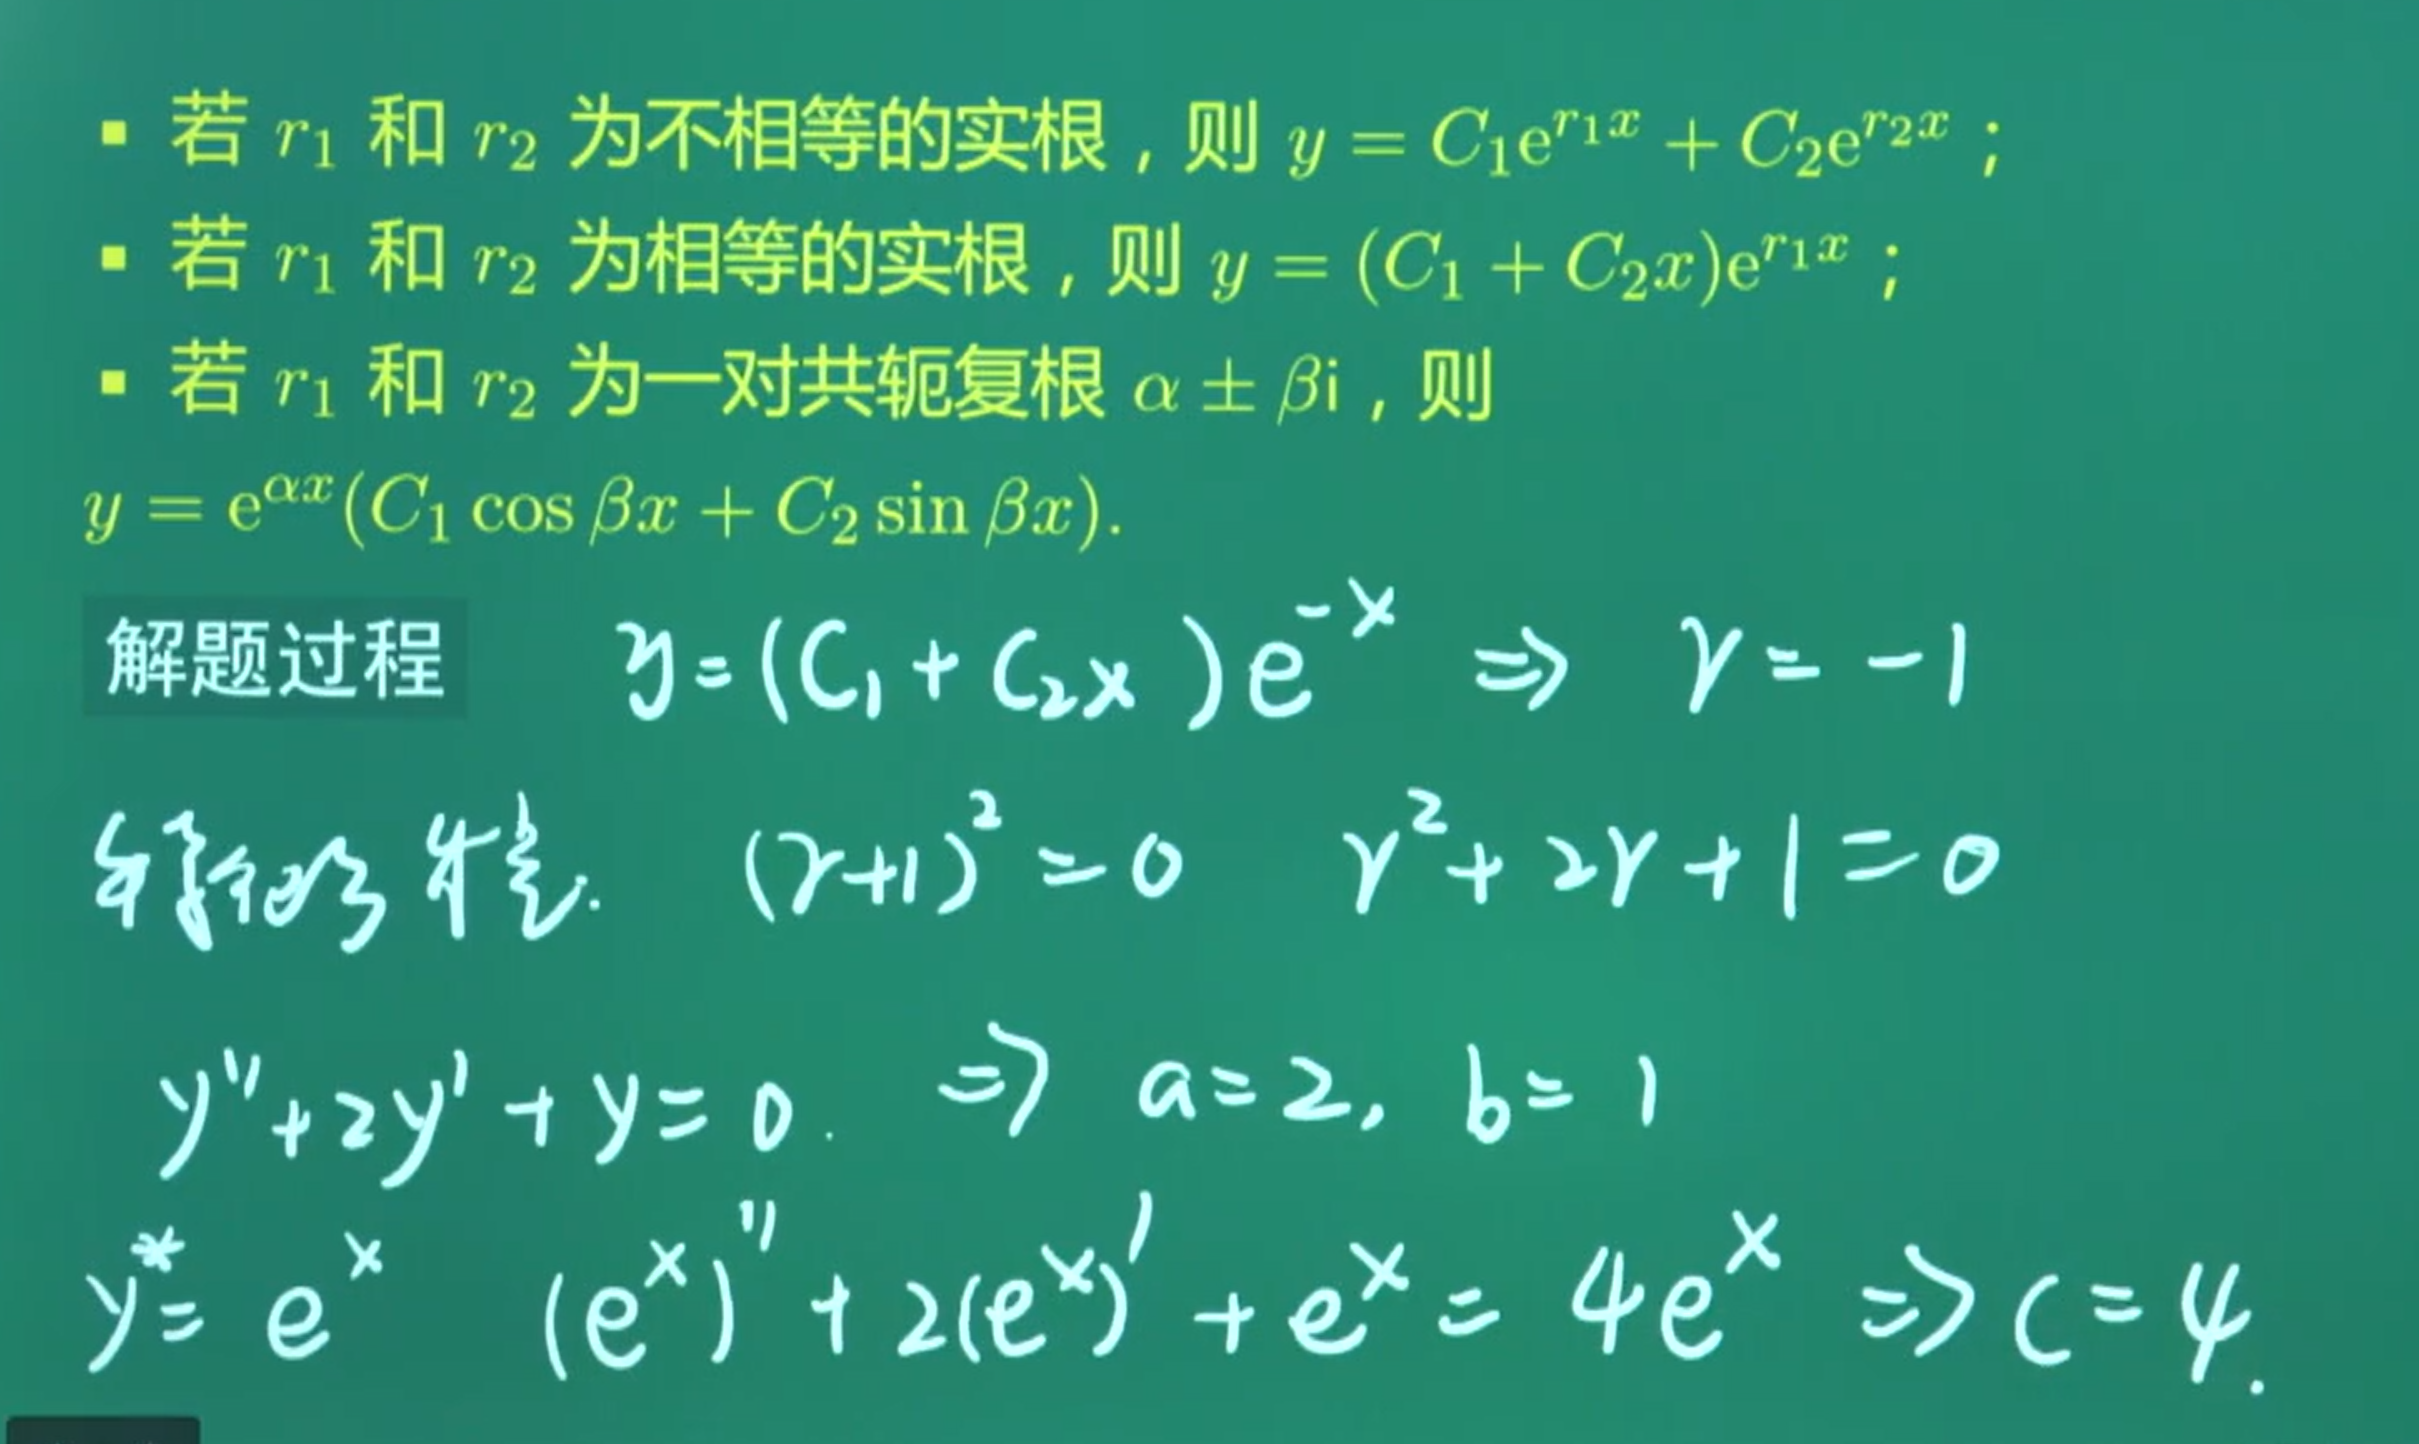 ▪ 若 r₁ 和 r₂ 为不相等的实根，则 y = C₁e^{r₁x} + C₂e^{r₂x}；
▪ 若 r₁ 和 r₂ 为相等的实根，则 y = (C₁ + C₂x)e^{r₁x}；
▪ 若 r₁ 和 r₂ 为一对共轭复根 α ± βi，则
y = e^{αx}(C₁ cos βx + C₂ sin βx).
解题过程 y = (C₁ + C₂x)e^{-x} ⇒ r = -1
(r+1)² = 0 r² + 2r + 1 = 0
y'' + 2y' + y = 0. ⇒ a = 2, b = 1
y* = e^x (e^x)'' + 2(e^x)' + e^x = 4e^x ⇒ c = 4.